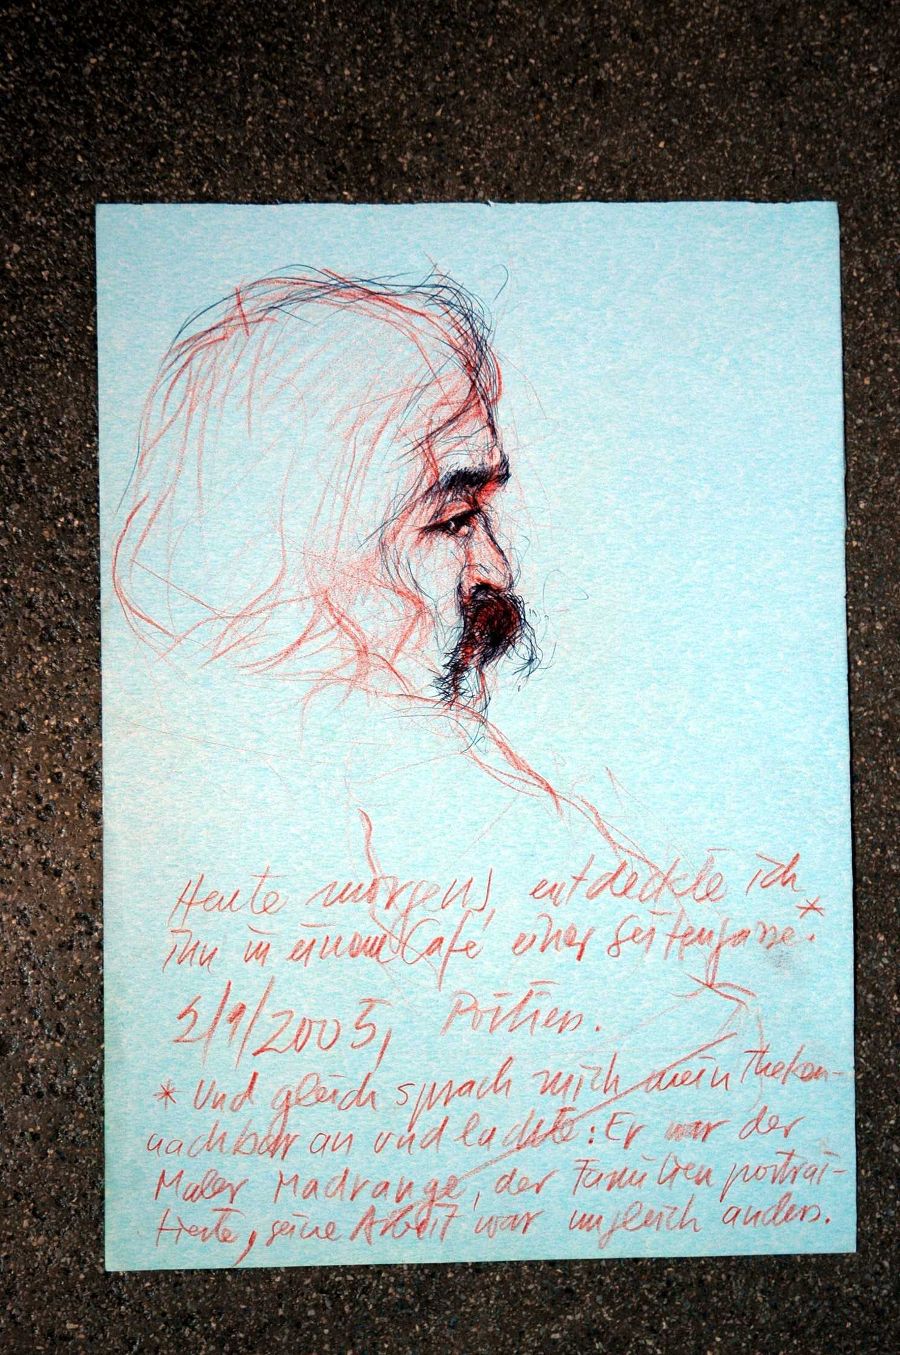 Heute morgens, entdeckte ich
ihn in einem Café einer Seitengasse.*
5/1/2005, Poitiers.
* Und gleich sprach mich mein Theken-
nachbar an und lachte: Er war der
Maler Madrange, der Familien porträt-
tierte, seine Arbeit war ungleich anders.